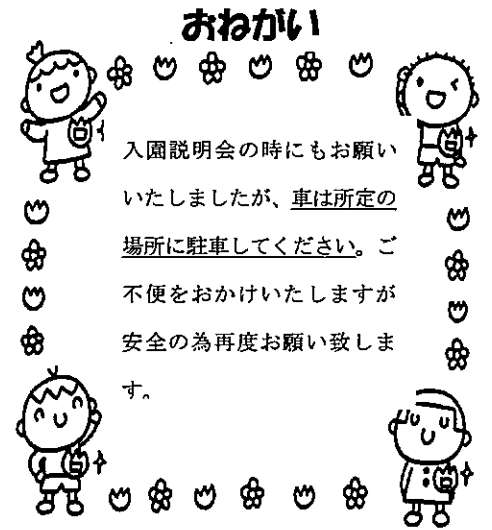 おねがい
入園説明会の時にもお願い
いたしましたが、車は所定の
場所に駐車してください。ご
不便をおかけいたしますが
安全の為再度お願い致しま
す。